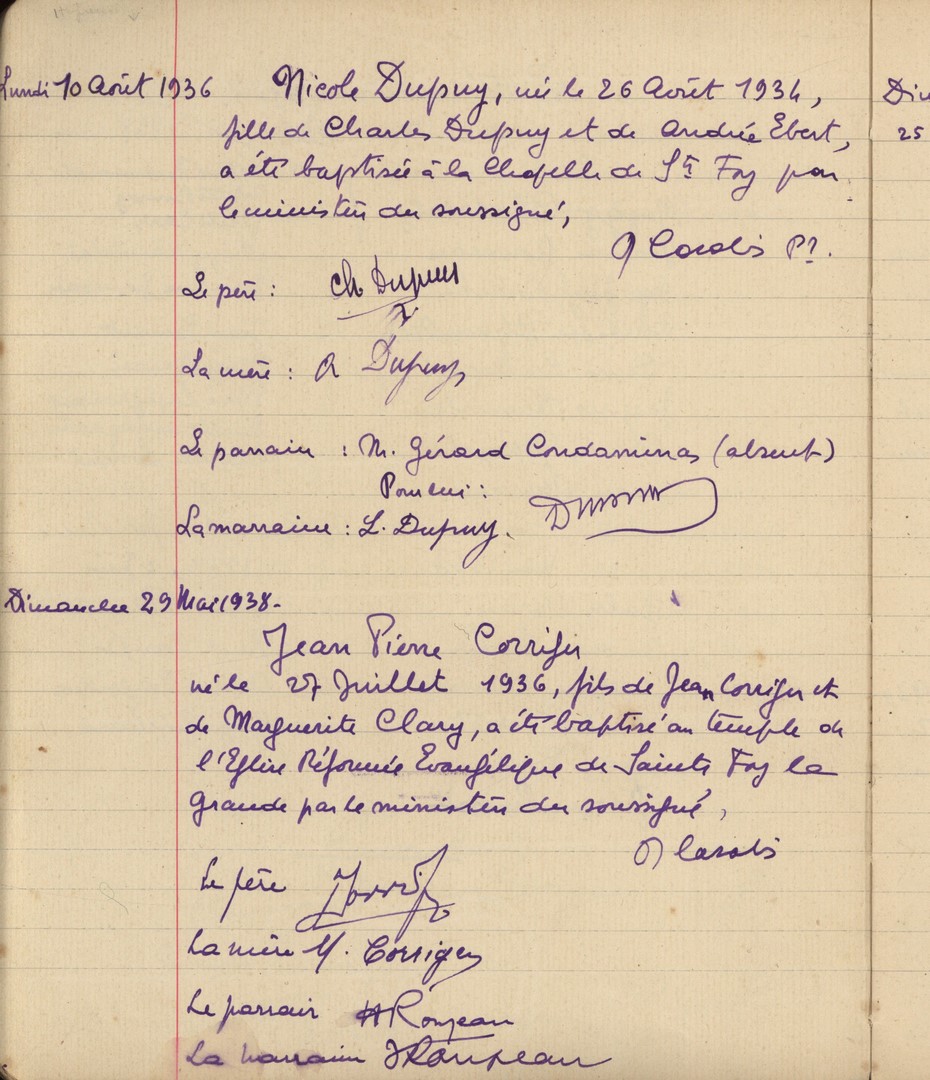 Lundi 10 Août 1936 Nicole Dupuy, née le 26 Août 1934,
fille de Charles Dupuy et de Andrée Ebert,
a été baptisée à la Chapelle de Ste Foy par
le ministère du soussigné,
Pr.
Le père : Ch Dupuy
La mère : A Dupuy
Le parrain : M. Gérard Condaminas (absent)
Pour lui :
La marraine : L. Dupuy.
Dimanche 29 Mai 1938.
Jean Pierre Corriger
né le 27 Juillet 1936, fils de Jean Corriger et
de Marguerite Clary, a été baptisé au temple de
l'Eglise Réformée Evangélique de Sainte Foy la
Grande par le ministère du soussigné,
Le père
La mère M. Corriger
Le parrain
La marraine
Dim
25